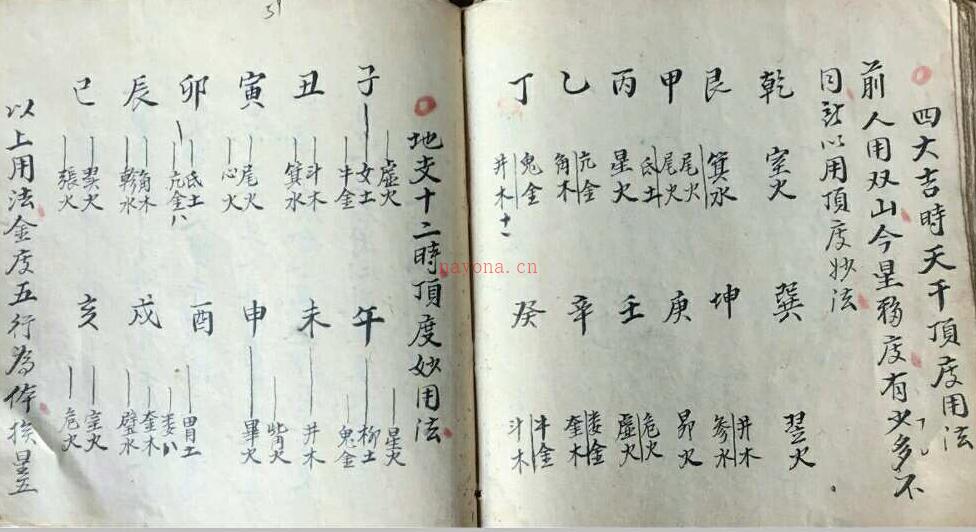 四大吉時天干頂度用法
前人用双山今星移度有少多不
同試以用頂度妙法
乾 室火
艮 箕水
甲 尾火 尾火
丙 氐土 星火
乙 亢金 角木
丁 鬼金 井木
巽 翌火
坤 井木 参水
庚 昴火
壬 危火 虛火
辛 娄金 奎木
癸 牛金 斗木
地支十二時頂度妙用法
子 虛火 女土 牛金
丑 斗木 箕水
寅 尾火 心火
卯 氐土 亢金八
辰 角木 軫水
巳 翌火 張火
午 星火 柳土 鬼金
未 井木
申 觜火 畢火
酉 胃土 娄八
戌 奎木 壁水
亥 室火 危火
以上用法金度五行為体挨星五
nayona.cn